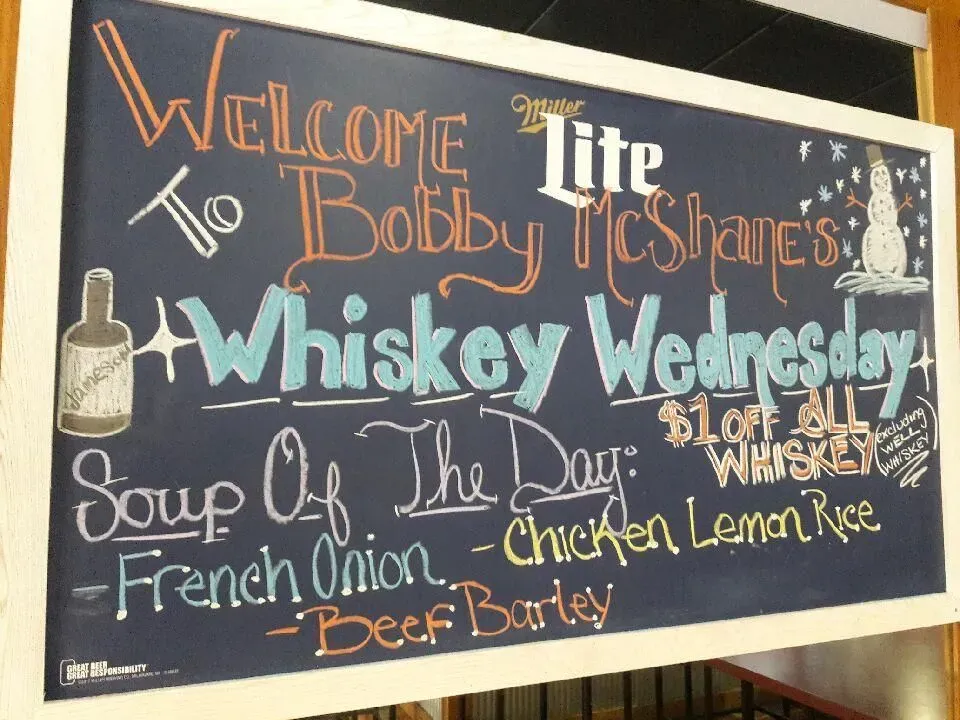 Welcome
Miller
Lite
To Bobby McShane's
Jameson
Whiskey Wednesday
$1 OFF ALL
WHISKEY
(excluding
WELL
WHISKEY)
Soup Of The Day:
- French Onion
- Chicken Lemon Rice
- Beef Barley
GREAT BEER
GREAT RESPONSIBILITY